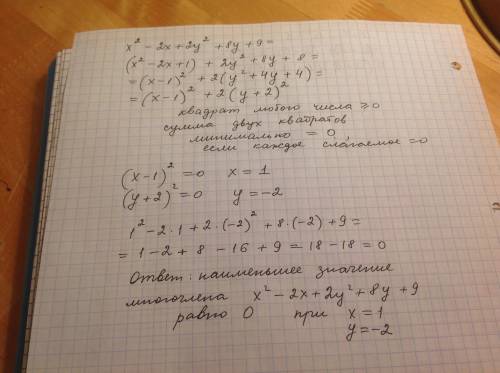 x² - 2x + 2y² + 8y + 9 =
(x² - 2x + 1) + 2y² + 8y + 8 =
= (x - 1)² + 2(y² + 4y + 4) =
= (x - 1)² + 2(y + 2)²
квадрат любого числа ≥ 0
сумма двух квадратов
минимально = 0,
если каждое слагаемое = 0
(x - 1)² = 0 x = 1
(y + 2)² = 0 y = -2
1² - 2·1 + 2·(-2)² + 8·(-2) + 9 =
= 1 - 2 + 8 - 16 + 9 = 18 - 18 = 0
Ответ: наименьшее значение
многочлена x² - 2x + 2y² + 8y + 9
равно 0 при x = 1
y = -2